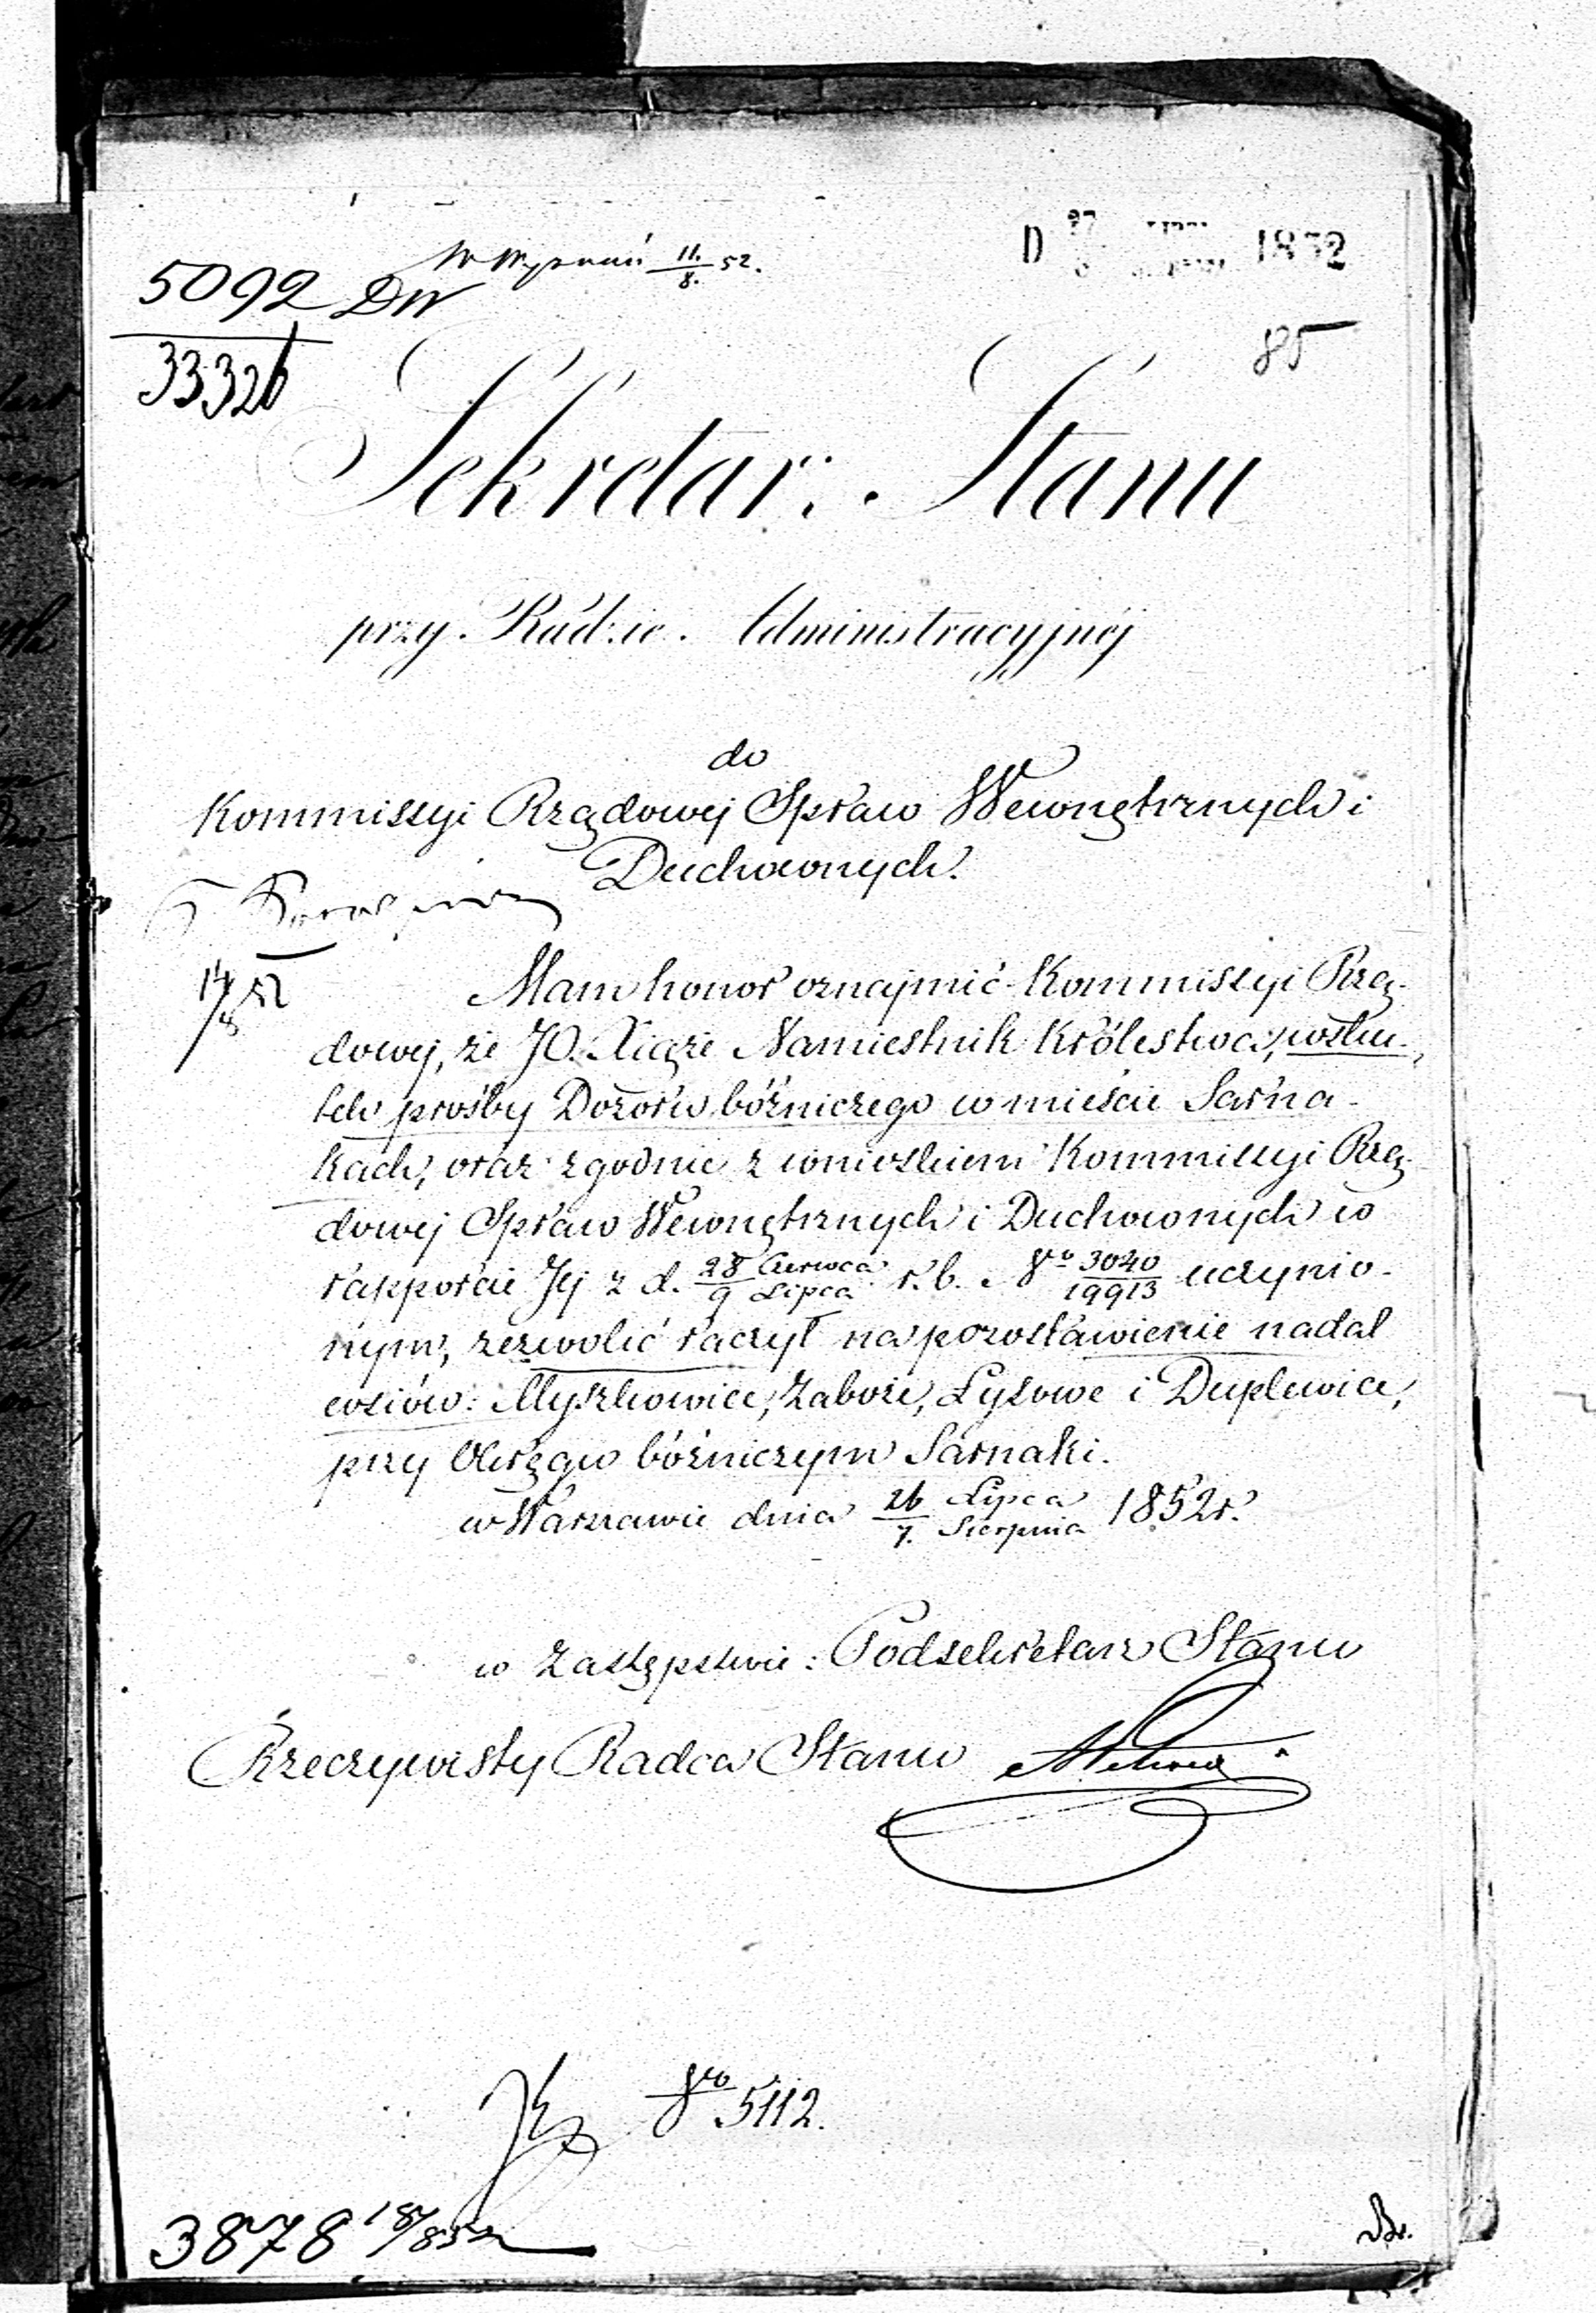 W Wyznań 11./8. 52.
D 27 1852
5092 DW
33326
85
Sekretarz Stanu
przy Radzie Administracyjnéj
do
Kommissyi Rządowej Spraw Wewnętrznych i
Duchownych.
14/8 52
Mam honor oznajmić Kommissyi Rzą-
dowej, że JO. Xiąże Namiestnik Królestwa, wsku-
tek prośby Dozoru bóżniczego w mieście Sarna-
kach, oraz zgodnie z wnioskiem Kommissyi Rzą-
dowej Spraw Wewnętrznych i Duchownych w
rapporcie Jej z d. 28 Czerwca/9 Lipca r. b. No 3040/19913 uczynio-
nym, zezwolić raczył na pozostawienie nadal
wsiów: Myszkowice, Zaboże, Łysowe i Duplewice,
przy Okręgu bóżniczym Sarnaki.
w Warszawie dnia 26 Lipca/7. Sierpnia 1852 r.
w Zastępstwie: Podsekretarz Stanu
Rzeczywisty Radca Stanu
No 5112.
3878 18/8 52